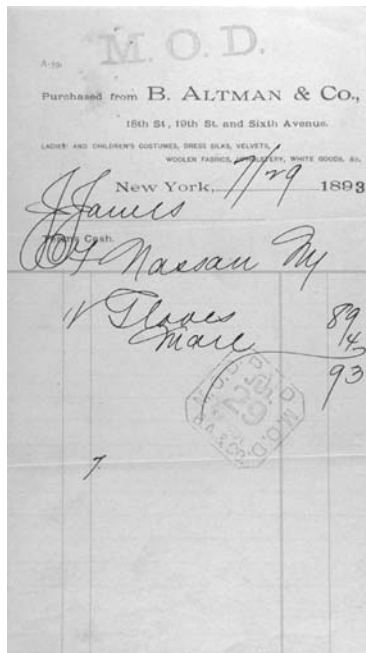 M.O.D.
Purchased from B. ALTMAN & CO.,
18th St., 19th St. and Sixth Avenue.
LADIES' AND CHILDREN'S COSTUMES, DRESS SILKS, VELVETS,
WOOLEN FABRICS, UPHOLSTERY, WHITE GOODS, &c.
New York, 7/29 1893
J James
Terms Cash.
Nassau Ny
Gloves 89
Mail 4
93
M.O.D. PAID M.O.D.
JUL
29
B.A. & CO.
7.